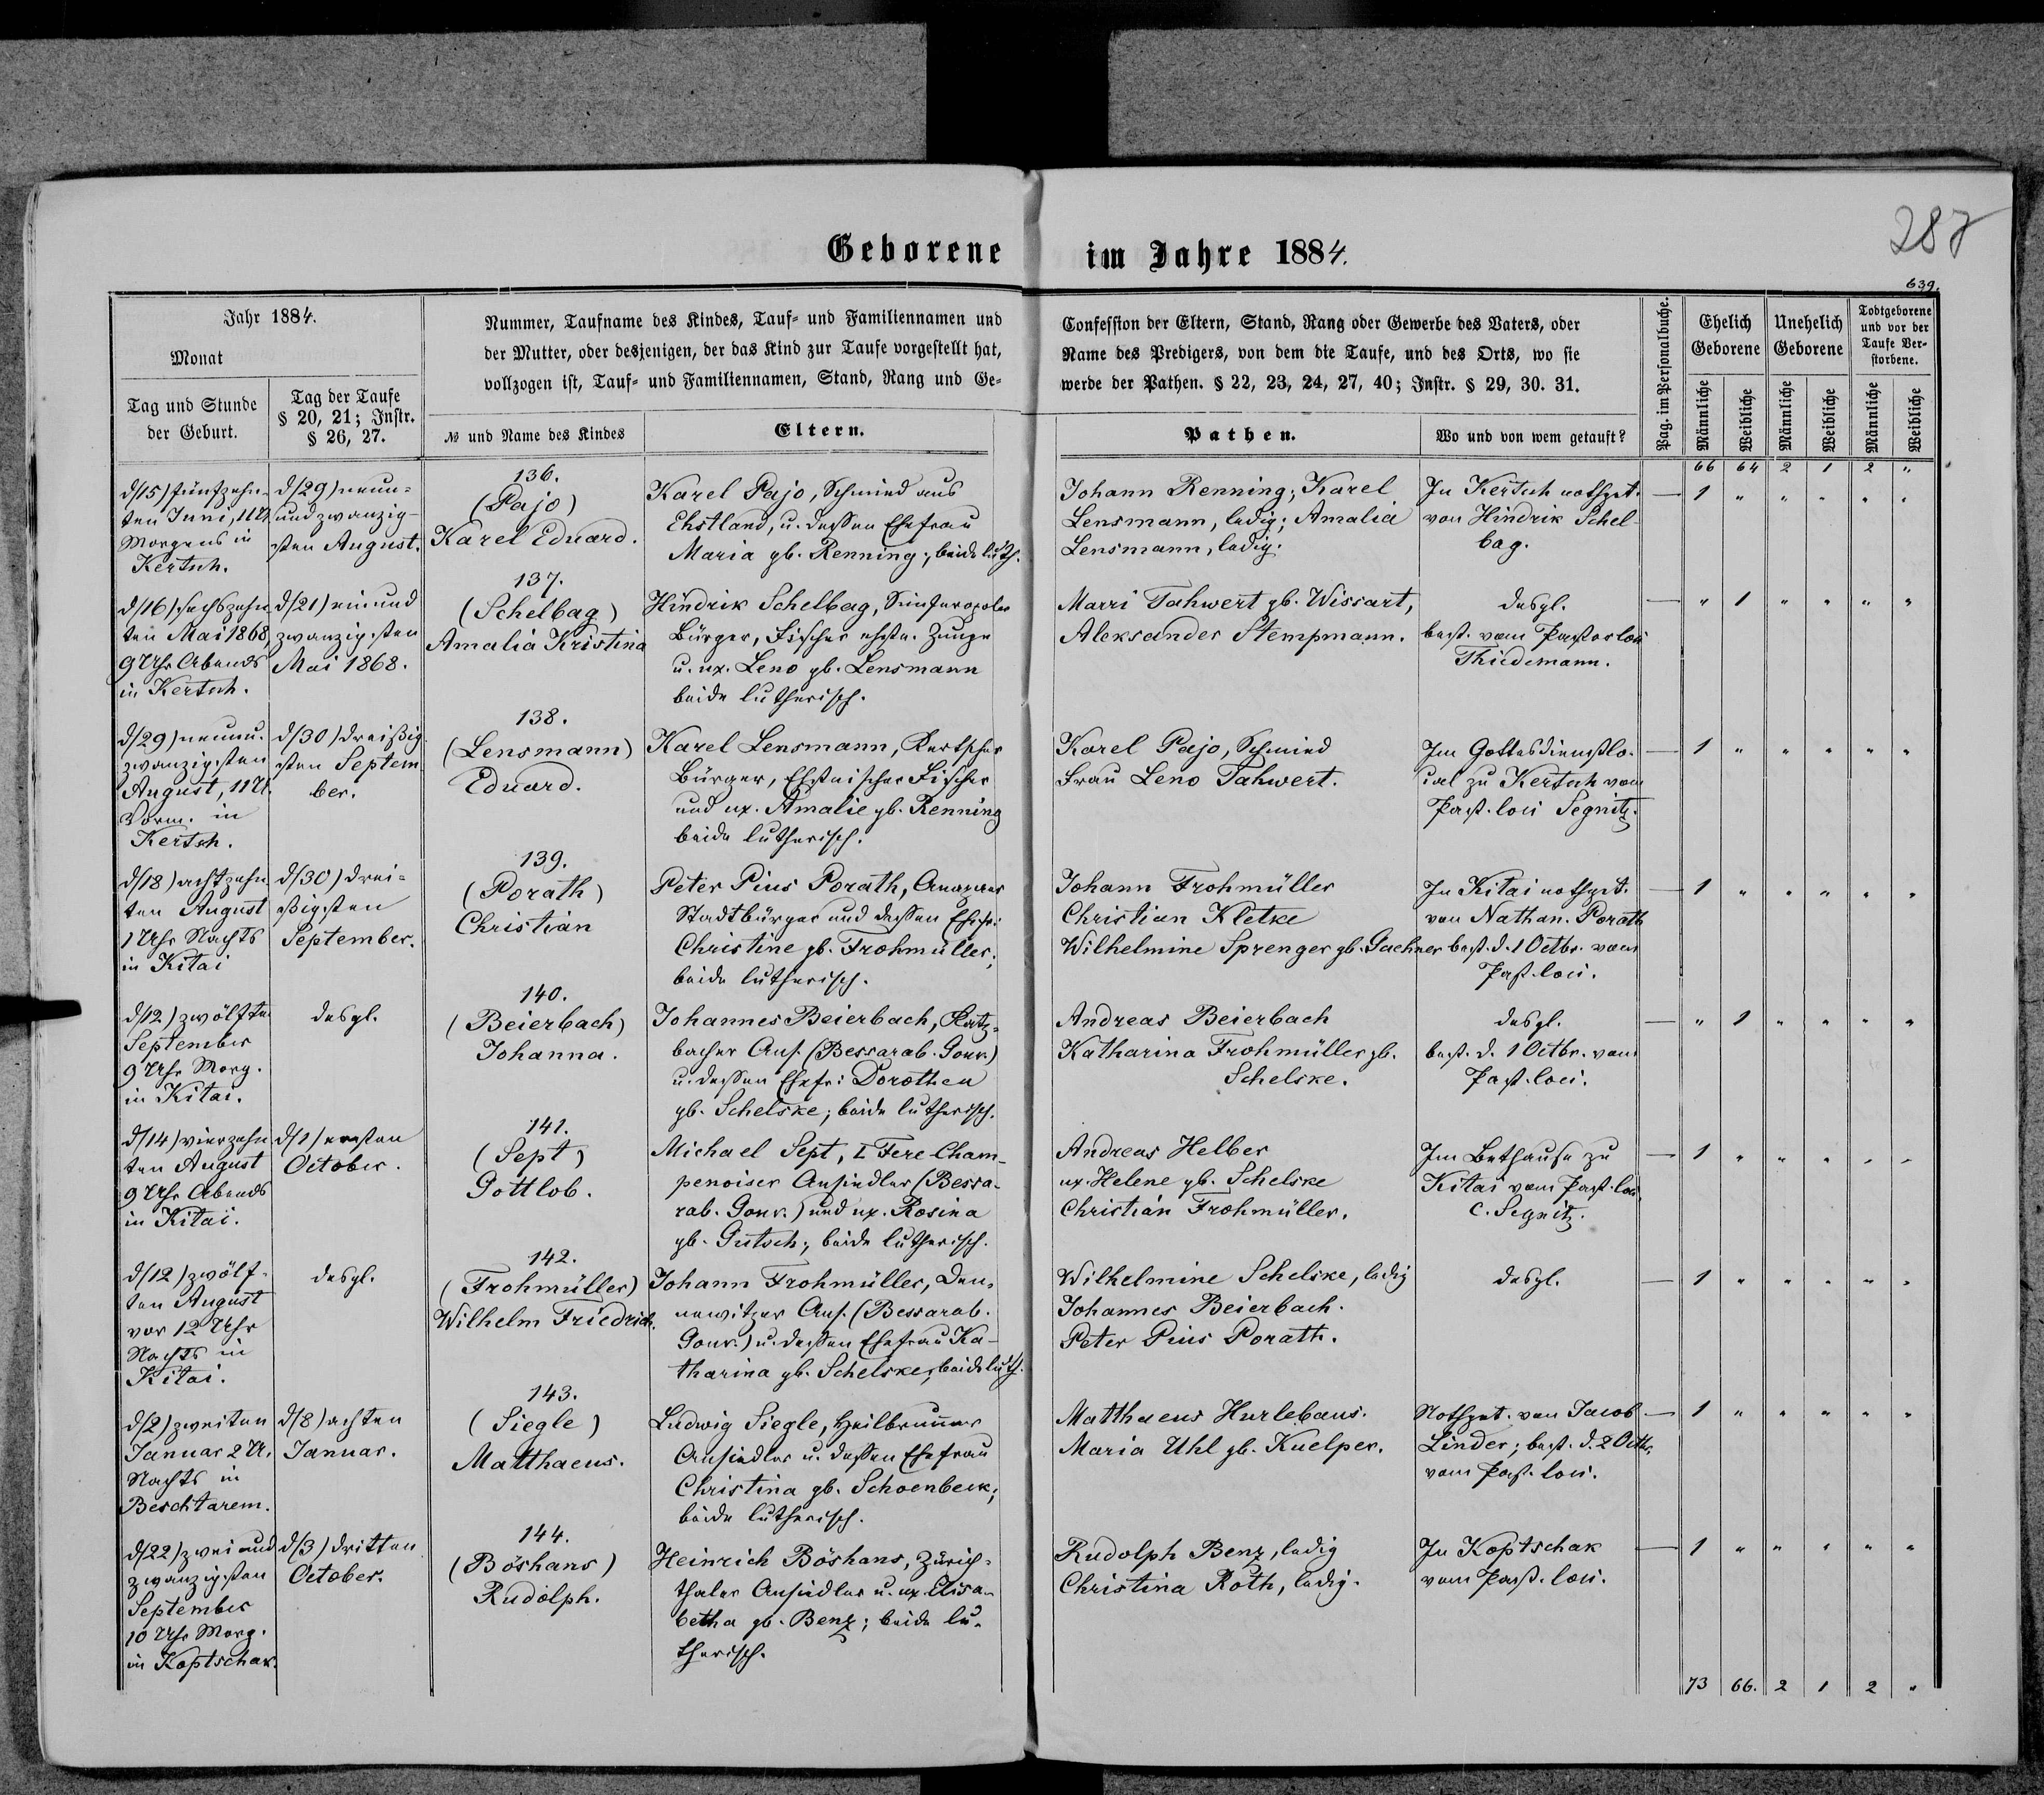 287
Geborene im Jahre 1884.
639.
Jahr 1884.
Monat
Tag und Stunde
der Geburt.
Tag der Taufe
§ 20, 21; Instr.
§ 26, 27.
Nummer, Taufname des Kindes, Tauf- und Familiennamen und
der Mutter, oder desjenigen, der das Kind zur Taufe vorgestellt hat,
vollzogen ist, Tauf- und Familiennamen, Stand, Rang und Ge-
№ und Name des Kindes
Eltern.
Confession der Eltern, Stand, Rang oder Gewerbe des Vaters, oder
Name des Predigers, von dem die Taufe, und des Orts, wo sie
werbe der Pathen. § 22, 23, 24, 27, 40; Instr. § 29, 30. 31.
Pathen.
Wo und von wem getauft?
Pag. im Personalbuche.
Ehelich
Geborene
Unehelich
Geborene
Todtgeborene
und vor der
Taufe Ver-
storbene.
Männliche
Weibliche
Männliche
Weibliche
Männliche
Weibliche
66 64 2 1 2 "
d/15) fünfzehn-
ten Juni, 11 U.
Morgens in
Kertsch.
d/29) neun-
undzwanzig-
sten August.
136.
(Pajo)
Karel Eduard.
Karel Pajo, Schmied aus
Ehstland, u. dessen Ehefrau
Maria gb. Renning; beide luth.
Johann Renning; Karel
Lensmann, ledig; Amalia
Lensmann, ledig.
In Kertsch nothget.
von Hindrik Schel-
bag.
— 1 " " " " "
d/16) sechszehn-
ten Mai 1868
9 Uhr Abends
in Kertsch.
d/21) einund
zwanzigsten
Mai 1868.
137.
(Schelbag)
Amalia Kristina
Hindrik Schelbag, Simferopoler
Bürger, Fischer ehstn. Zunge
u. ux. Leno gb. Lensmann
beide lutherisch.
Marri Tahwert gb. Wissart,
Aleksander Stempmann.
desgl.
best. vom Pastor loci
Thiedemann.
— " 1 " " " "
d/29) neunu.
zwanzigsten
August, 11 U.
Vorm. in
Kertsch.
d/30) dreißig
sten Septem
ber.
138.
(Lensmann)
Eduard.
Karel Lensmann, Kertscher
Bürger, Ehstnischer Fischer
und ux. Amalie gb. Renning
beide lutherisch.
Karel Pajo, Schmied
Frau Leno Tahwert.
Im Gottesdienstlo-
cal zu Kertsch vom
Past. loci Segnitz.
— 1 " " " " "
d/18) achtzehn
ten August
1 Uhr Nachts
in Kitai
d/30) drei-
ßigsten
September.
139.
(Porath)
Christian
Peter Pius Porath, Anapaer
Stadtbürger und dessen Ehefr:
Christine gb. Frohmüller;
beide lutherisch.
Johann Frohmüller
Christian Kletke
Wilhelmine Sprenger gb. Gaehner
In Kitai nothget.
von Nathan. Porath
best. d. 1 Octbr. vom
Past. loci.
— 1 " " " " "
d/12) zwölften
September
9 Uhr Morg.
in Kitai.
desgl.
140.
(Beierbach)
Johanna.
Johannes Beierbach, Katz-
bacher Ans. (Bessarab. Gouv.)
u. dessen Ehefr: Dorothea
gb. Schelske; beide lutherisch.
Andreas Beierbach
Katharina Frohmüller gb.
Schelske.
desgl.
best. d. 1 Octbr. vom
Past. loci.
— " 1 " " " "
d/14) vierzehn
ten August
9 Uhr Abends
in Kitai.
d/1) ersten
October.
141.
(Sept)
Gottlob.
Michael Sept, I Fere-Cham-
penoiser Ansiedler (Bessa-
rab. Gouv.) und ux. Rosina
gb. Gutsch; beide lutherisch.
Andreas Helber
ux. Helene gb. Schelske
Christian Frohmüller.
Im Bethause zu
Kitai vom Past. loci
C. Segnitz.
— 1 " " " " "
d/12) zwölf-
ten August
vor 12 Uhr
Nachts in
Kitai.
desgl.
142.
(Frohmüller)
Wilhelm Friedrich.
Johann Frohmüller, Den-
newitzer Ans. (Bessarab.
Gouv.) u. dessen Ehefrau Ka-
tharina gb. Schelske; beide luth.
Wilhelmine Schelske, ledig
Johannes Beierbach.
Peter Pius Porath.
desgl.
— 1 " " " " "
d/2) zweiten
Januar 2 U.
Nachts in
Beschtarem.
d/8) achten
Januar.
143.
(Siegle)
Matthaeus.
Ludwig Siegle, Heilbrunner
Ansiedler u. dessen Ehefrau
Christina gb. Schoenbeck;
beide lutherisch.
Matthaeus Hurlebaus.
Maria Uhl gb. Kuelper.
Nothget. von Jacob
Linder; best. d. 2 Octbr.
vom Past. loci.
— 1 " " " " "
d/22) zwei und
zwanzigsten
September
10 Uhr Morg.
in Koptschak.
d/3) dritten
October.
144.
(Böshans)
Rudolph.
Heinrich Böshans, Zürich-
thaler Ansiedler u. ux. Elisa-
betha gb. Benz; beide lu-
therisch.
Rudolph Benz, ledig
Christina Roth, ledig.
In Koptschak
vom Past. loci.
— 1 " " " " "
73 66. 2 1 2 "